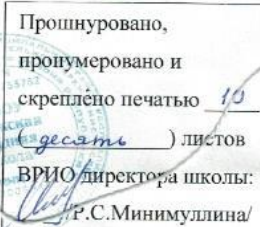 Прошнуровано,
пронумеровано и
скреплено печатью 10
(десять) листов
ВРИО директора школы:
/Р.С.Минимуллина/